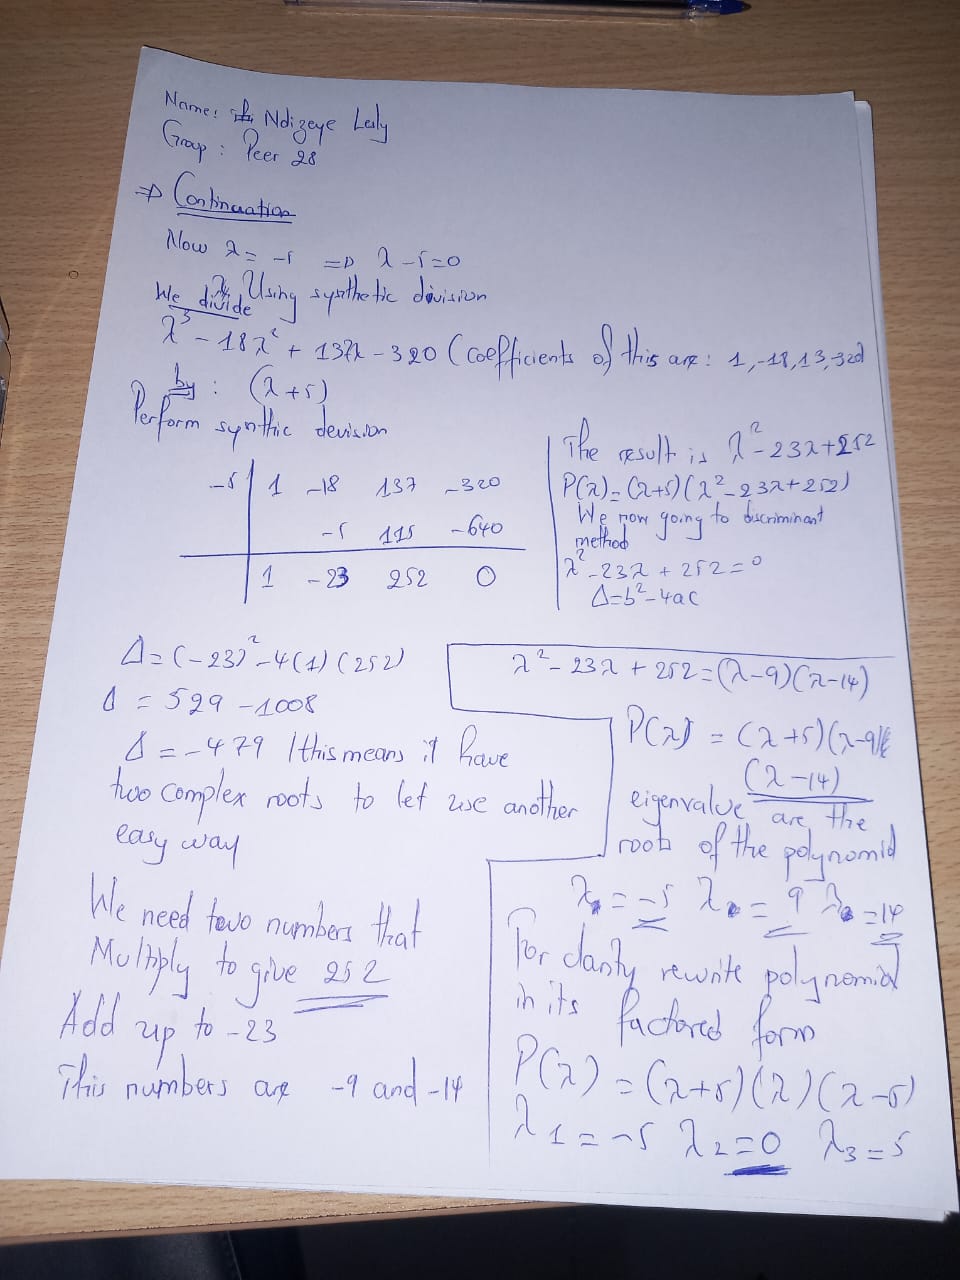 Name: Ndizeye Lesly
Group: Peer 28
⇒ Continuation
Now λ = -5 ⇒ λ - 5 = 0
We divide Using systhetic division
λ³ - 18λ² + 137λ - 320 (coefficients of this are: 1, -18, 13, 320
by: (λ+5)
Perform synthic devision
-5 | 1 -18 137 -320
-5 115 -640
1 -23 252 0
The result is λ² - 23λ + 252
P(λ) = (λ+5)(λ² - 23λ + 252)
We now going to discriminant
method
λ² - 23λ + 252 = 0
Δ = b² - 4ac
Δ = (-23)² - 4(1)(252)
Δ = 529 - 1008
Δ = -479 / this means it have
two complex roots to let use another
easy way
We need two numbers that
Multiply to give 252
Add up to -23
This numbers are -9 and -14
λ² - 23λ + 252 = (λ-9)(λ-14)
P(λ) = (λ+5)(λ-9)
(λ-14)
eigenvalue are the
roots of the polynomial
λ = -5 λ = 9 λ = 14
For clarity rewrite polynomial
in its factored form
P(λ) = (λ+5)(λ)(λ-5)
λ1 = -5 λ2 = 0 λ3 = 5